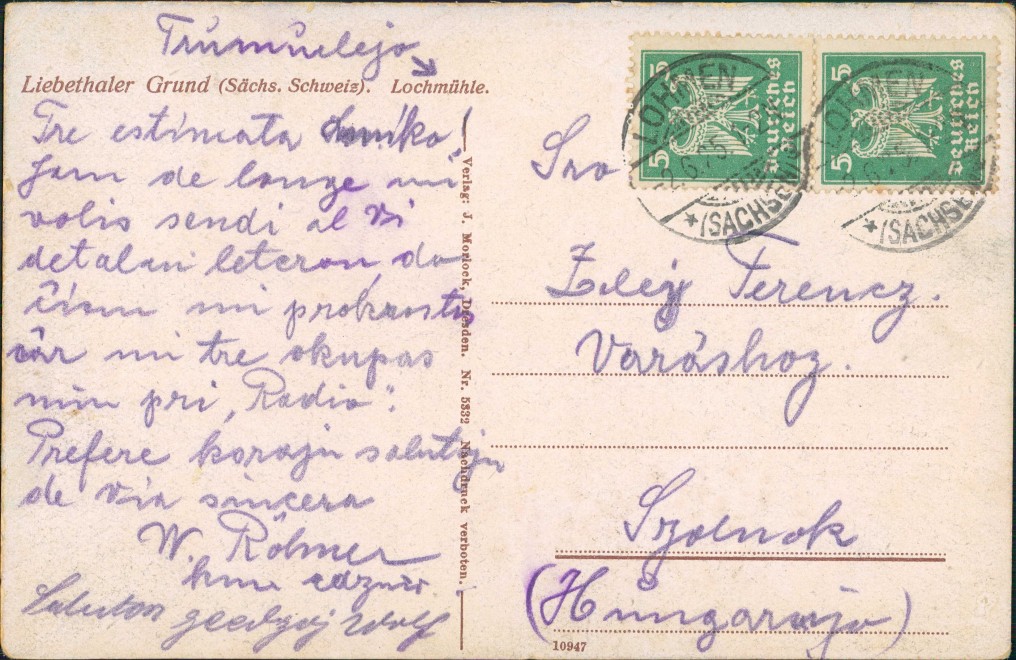 Liebethaler Grund (Sächs. Schweiz). Lochmühle.
Tre estimata Amiko!
Jam de longe mi
volis sendi al Vi
detalan leteron, do
ĉiam mi prokrastis
ĉar mi tre okupas
min pri „Radio“.
Prefere korajn salutojn
de via sincera
W. Röhner
kun edzino.
Saluton Wolf
Verlag: J. Morlock, Dresden. Nr. 5832 Nachdruck verboten.
Sro
Ferencz.
Varáshoz.
Szolnok
(Hungarujo)
10947
5 5 Deutsches Reich
5 5 Deutsches Reich
LOHMEN
(SACHSEN)
LOHMEN
(SACHSEN)